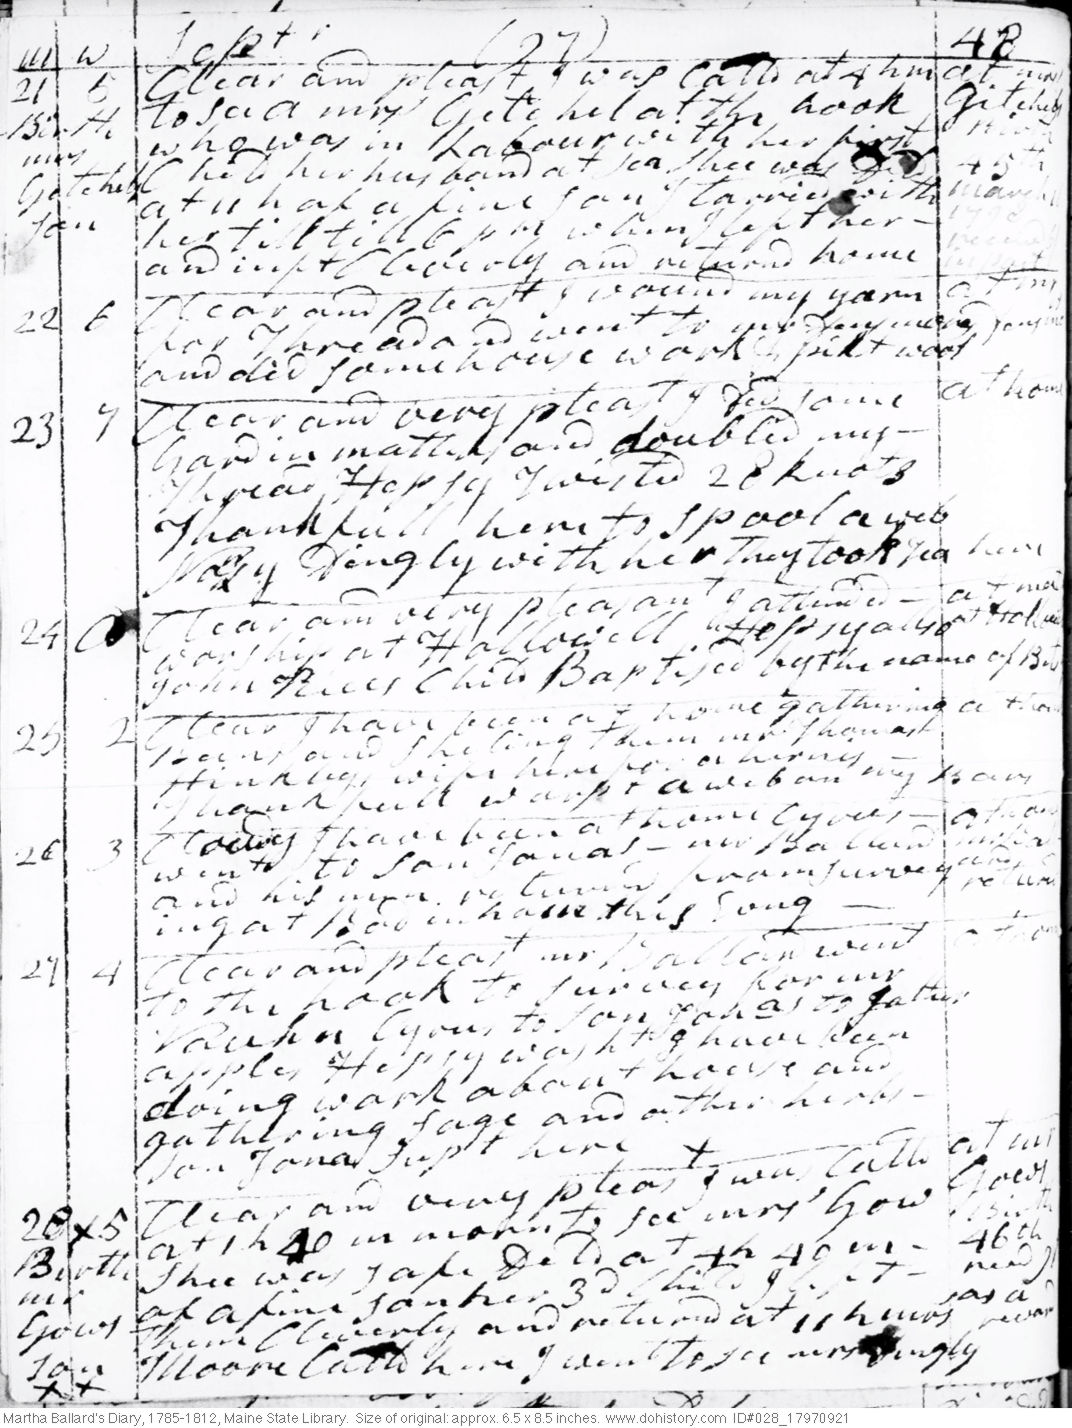 m w Sept r (27) 48
21 5 Clear and pleast I was Calld at 4 hm at mrs
Birth to see mrs Getchel at the hook Gitchels
mrs who was in Labour with her first Birth
Getchels Child her husband at sea shee was 45th
son at 11 h of a fine son I tarried with march
her till till 6 pm when I left her 1798
and inft Cleverly and returnd home
22 6 Clear and pleast I wound my yarn at mr
for Thread and went to mr Densmores
and did some house work & pikt wool
23 7 Clear and very pleast I did some at home
Gardin matters and doubled my
Thread Hepsy Twisted 28 knots
Thankfull here to spool a web
Dingly with her They took Tea here
24 Clear and very pleasant I attended
worship at Hallowell Hepsy also
John Child Baptised by the name of
25 2 Clear I have been at home gathering at home
and sheling them mr Thomas
Hinkleys wife here for a
Thankfull warpt a web on my Bars
26 3 Cloudy I have been at home Cyrus at home
went to son Jonas mr Ballard
and his men returnd from survey
ing at Bodinham this Evng
27 4 Clear and pleast mr Ballard went at home
to the hook to survey for mr
Vauhn Cyrus to son Jonas to gather
apples Hepsy washt I have been
doing work about house and
gathering sage and other herbs
son Jonas supt here
28 x 5 Clear and very pleast I was Calld at mr
Birth at 1 h 40 m morn to see mrs Gow Gows
mr shee was safe Deld at 4 h 40 m Birth
Gows of a fine son her 3d Child I left 46th
son them Cleverly and returnd at 11 h mrs as a
x x Moore Calld here I went to see mrs Dingly reward
Martha Ballard's Diary, 1785-1812, Maine State Library. Size of original: approx. 6.5 x 8.5 inches. www.dohistory.com ID#028_17970921